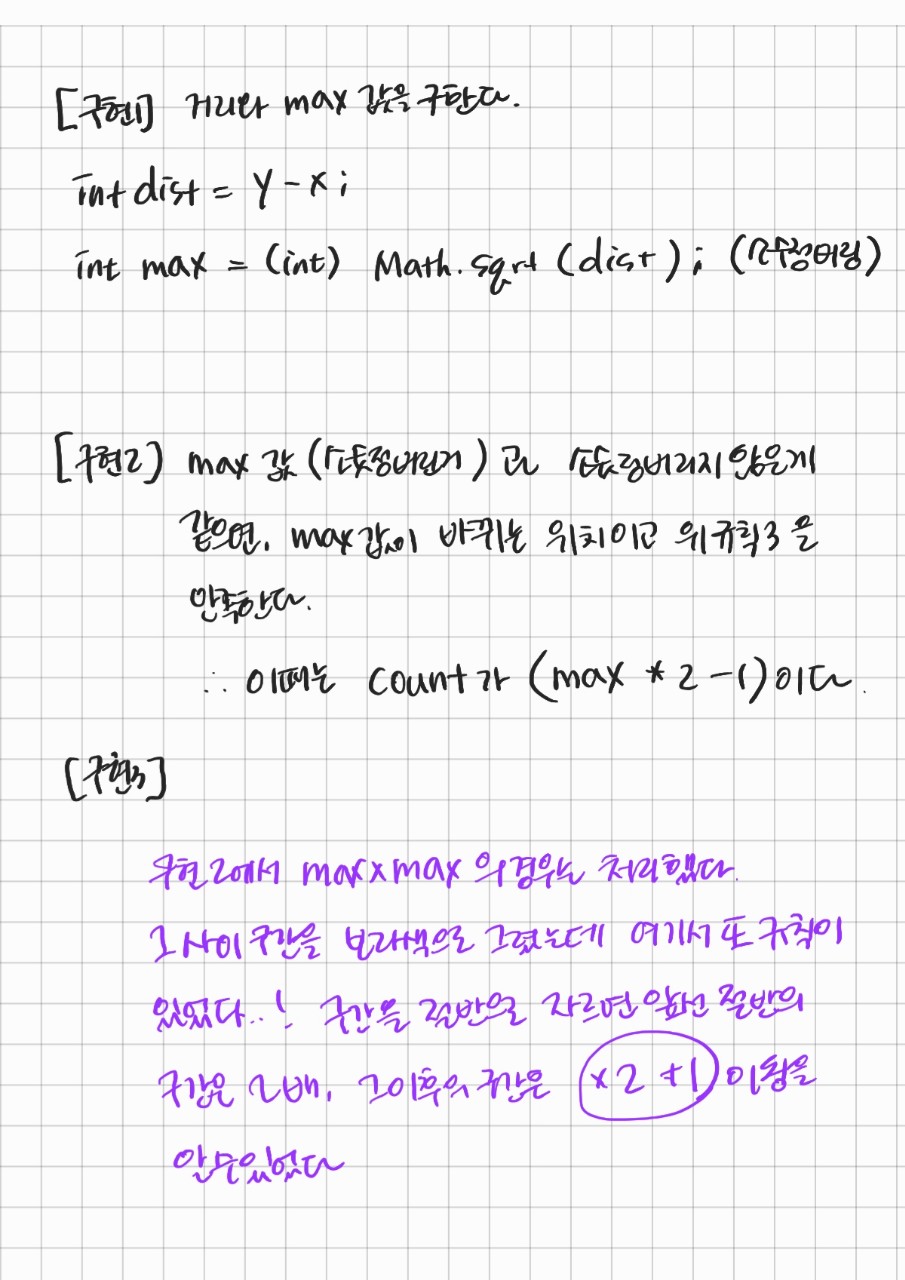 [구현1] 거리와 max 값을 구한다.
int dist = y - x ;
int max = (int) Math.sqrt (dist) ; (소수점버림)
[구현2] max 값 (소숫점버린거) 과 소숫점버리지 않은게
같으면, max값이 바뀌는 위치이고 위규칙3 을
만족한다.
∴ 이때는 count가 (max * 2 - 1)이다.
[구현3]
구현2에서 max x max 의경우는 처리했다.
그 사이 구간을 보라색으로 그렸는데 여기서 또 규칙이
있었다..! 구간을 절반으로 자르면 앞선 절반의
구간은 2배, 그이후의 구간은 x 2 + 1 이황을
알수있었다